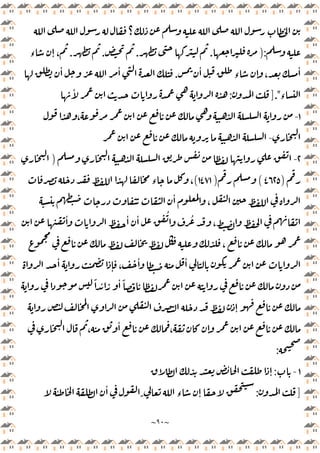 بن الخطاب رسول الله صلى الله عليه وسلم عن ذلك؟ فقال له رسول الله صلى الله
عليه وسلم: (مره فليراجعها. ثم ليتركها حتى تطهر. ثم تحيض. ثم تطهر. ثم، إن شاء
أمسك بعد، وإن شاء طلق قبل أن يمس. فتلك العدة التي أمر الله عز وجل أن يطلق لها
النساء". [ قلت المدون: هذه الرواية هي عمدة روايات حديث ابن عمر لأنها
١- من رواية السلسلة الذهبية وهي مالك عن نافع عن ابن عمر مرفوعة، وهذا قول
البخاري- السلسلة الذهبية ما يرويه مالك عن نافع عن ابن عمر
٢- اتفق على روايتها لفظا من نفس طريق السلسلة الذهبية البخاري ومسلم ( البخاري
رقم (٤٦٢٥ ) ومسلم رقم (١٤٧١) ، وكل ما جاء مخالفا لهذا اللفظ فقد دخلة تصرفات
الرواة في اللفظ حين النقل، والمعلوم أن الثقات تتفاوت درجات ضبطهم نسبة
في اتقانهم في الحفظ والضبط، وقد عُرف واتُّفق على أن أحفظ الروايات وأتقنها عن ابن
عمر هو مالك عن نافع ، فلذلك وعليه فكل لفظ يخالف لفظ مالك عن نافع في مجموع
الروايات عن ابن عمر يكون بالتالي أقل منه ضبطا وحفظا، فإذا تضمنت رواية أحد الرواة
من دون مالك عن نافع في روايته عن ابن عمر لفظا ناقصاً أو زائداً ليس موجودا في رواية
مالك عن نافع فهو إذن لفظ قد دخله التصرف النقلي من الراوي المخالف لنص رواية
مالك عن نافع عن ابن عمر وإن كان ثقة، فمالك عن نافع أوثق منه، ثم قال البخاري في
صحيحه:
١- باب: إذا طلقت الحائض يعتد بذلك الطلاق
[ قلت المدون: سيتحقق لاحقا إن شاء الله تعالى، القول في أن الطلقة الخاطئة لا
~٩٠~